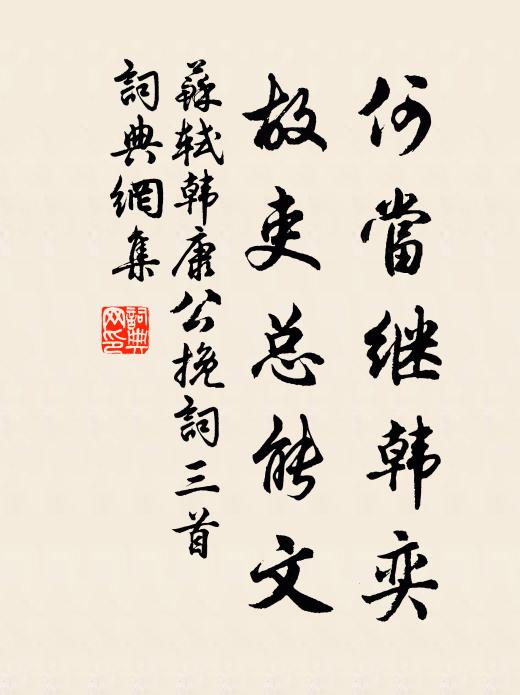 何當继韩奕
故吏总能文
蘇轼韩康公挽詞三首
詞典網集
詞典网印